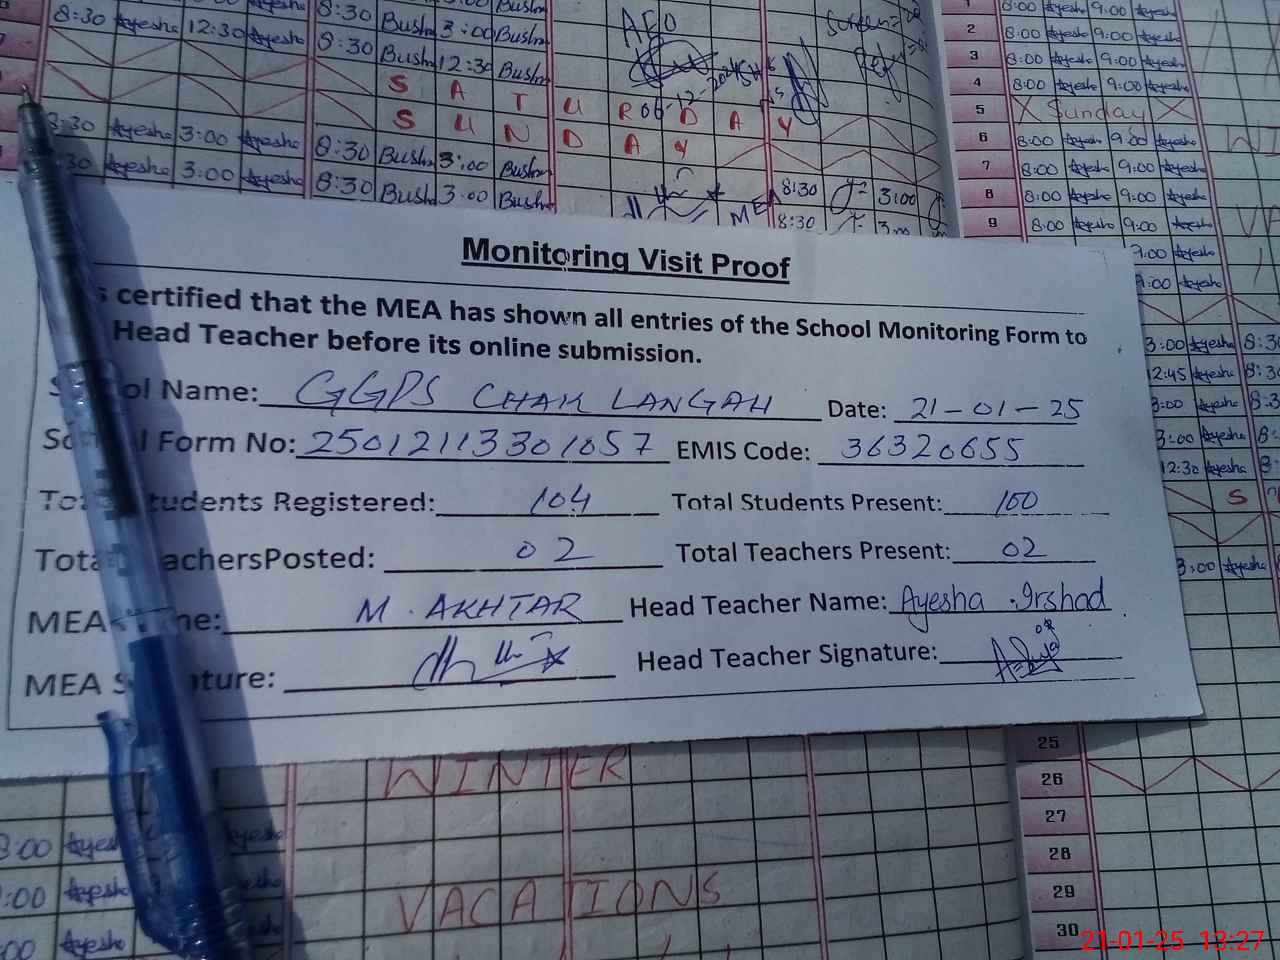 8:30 Ayesha 12:30 Ayesha 8:30 Bushra 3:00 Bushra
8:30 Bushra 12:30 Bushra
AEO
S A T U R D A Y
S U N D A Y
8:30 Ayesha 3:00 Ayesha 8:30 Bushra 3:00 Bushra
:30 Ayesha 3:00 Ayesha 8:30 Bushra 3:00 Bushra
MEA 8:30 3:00
8:30
8:00 Ayesha 9:00 Ayesha
2 8:00 Ayesha 9:00 Ayesha
3 8:00 Ayesha 9:00 Ayesha
4 8:00 Ayesha 9:00 Ayesha
5 Sunday
6 8:00 Ayesha 9:00 Ayesha
7 8:00 Ayesha 9:00 Ayesha
8 8:00 Ayesha 9:00 Ayesha
9 8:00 Ayesha 9:00 Ayesha
9:00 Ayesha
9:00 Ayesha
3:00 Ayesha 8:30
12:45 Ayesha
3:00 Ayesha
3:00 Ayesha
12:30 Ayesha
S
3:00 Ayesha
Monitoring Visit Proof
certified that the MEA has shown all entries of the School Monitoring Form to
Head Teacher before its online submission.
School Name: GGPS CHAK LANGAH Date: 21-01-25
School Form No: 25012113301057 EMIS Code: 36320655
Total Students Registered: 104 Total Students Present: 100
Total TeachersPosted: 02 Total Teachers Present: 02
MEA Name: M. AKHTAR Head Teacher Name: Ayesha Irshad
MEA Signature: Head Teacher Signature:
WINTER
VACATIONS
:00 Ayesha
:00 Ayesha
:00 Ayesha
25
26
27
28
29
30
21-01-25 13:27